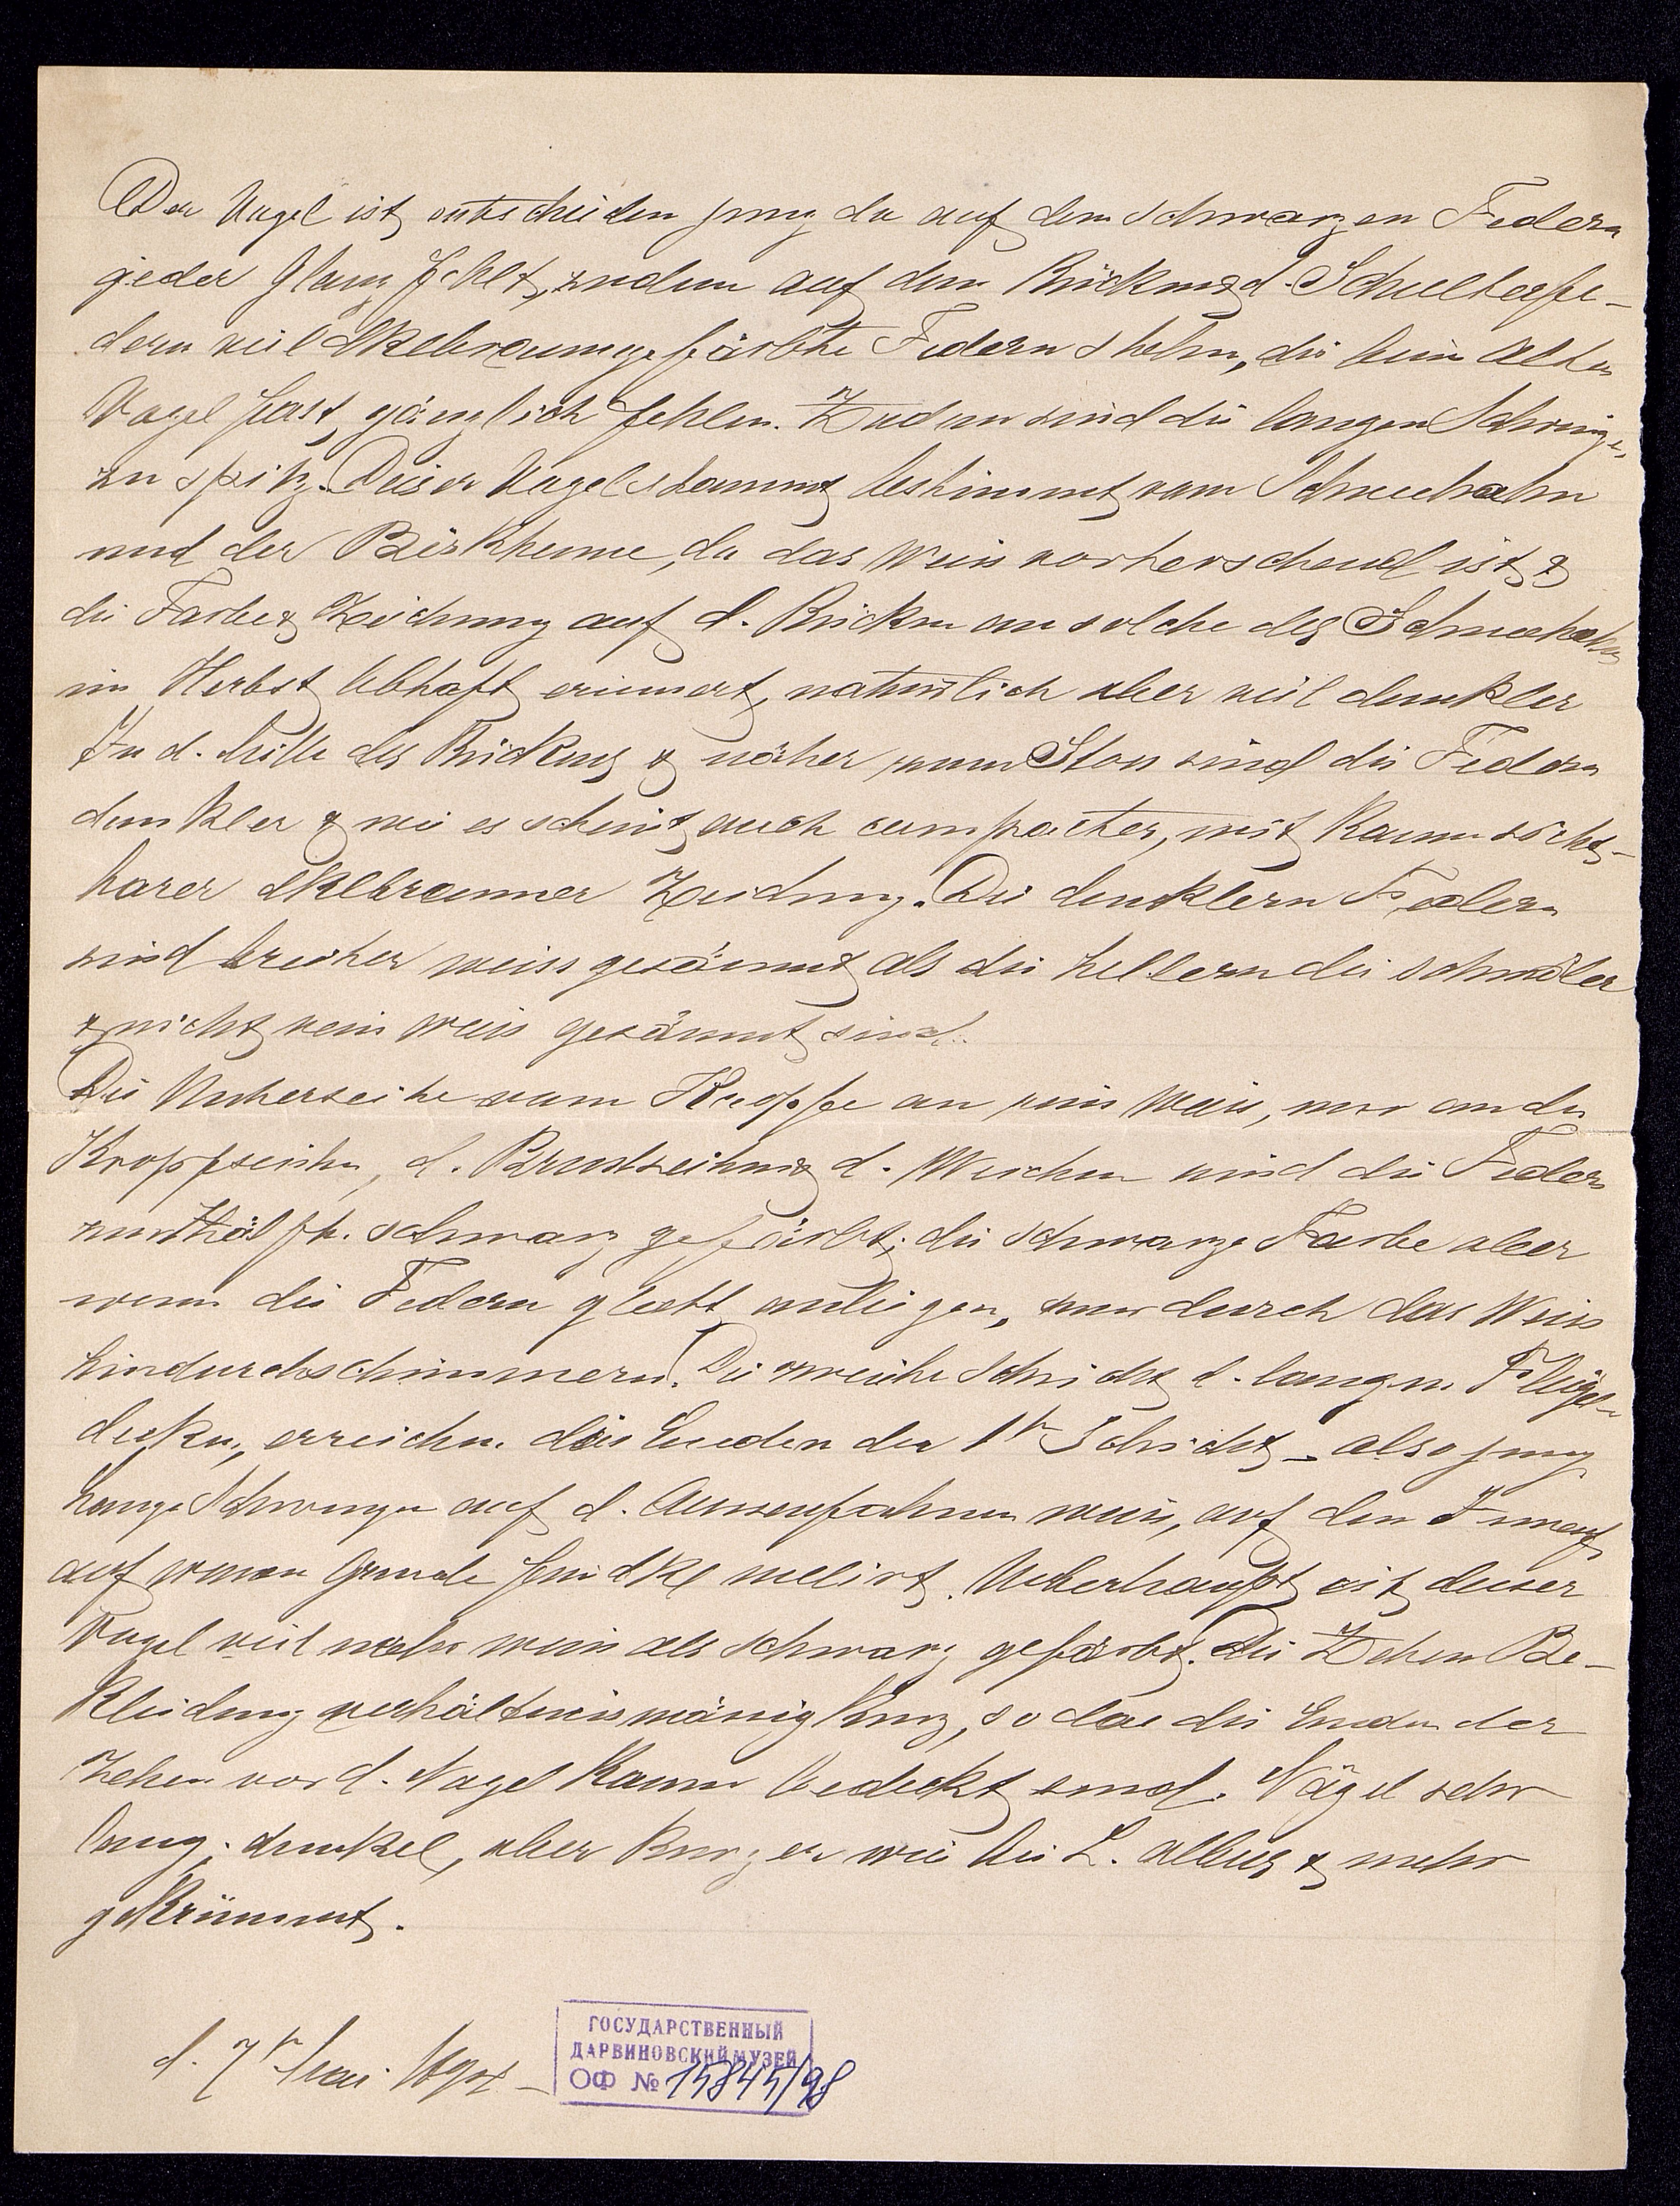 Der Vogel ist entschieden jung da auf den schwarzen Federn
jeder Glanz fehlt, zudem auf dem Rücken & d. Schulterfe-
dern viel dkelbraungefärbte Federn stehen, die beim alten
Vogel fast gänzlich fehlen. Zudem sind die langen Schwingen
zu spitz. Dieser Vogel stammt bestimmt vom Schneehahn
und der Birkhenne, da das Weiss vorherschend ist &
die Farbe & Zeichnung auf d. Rücken an solche des Schneehahns
im Herbst lebhaft erinnert, natürlich aber viel dunkler
In d. Mitte des Rückens & näher zum Stoss sind die Federn
dunkler & wie es scheint auch compacter, mit kaum sicht-
barer dkelbrauner Zeichnung. Die dunklern Federn
sind breiter weiss gesäumt als die hellern die schmäler
& nicht rein weiss gesäumt sind.
Die Unterseite vom Kropfe an rein weiss, nur an den
Kropfseiten, d. Brustseiten & d. Weichen sind die Federn
zur Hälfte schwarz gefärbt; die schwarze Farbe aber
wenn die Federn glatt anliegen, nur durch das Weiss
hindurchschimmern. Die zweite Schicht d. langen Flügel-
decken, erreichen die Enden der 1ten Schicht – also jung
Lange Schwingen auf d. Aussenfahnen weiss, auf den Innenf.
auf Grunde dkel melirt. Ueberhaupt ist dieser
Vogel viel mehr weiss als schwarz gefärbt. Die Zehen Be-
kleidung verhältnismässig kurz, so das die Enden der
Zehen vor d. Nagel kaum bedeckt sind. Nägel sehr
lang, dunkel, aber kurzer wie bei L. albus & mehr
gekrümmt.
d. 7ten Mai
ГОСУДАРСТВЕННЫЙ
ДАРВИНОВСКИЙ МУЗЕЙ
ОФ № 15845/98